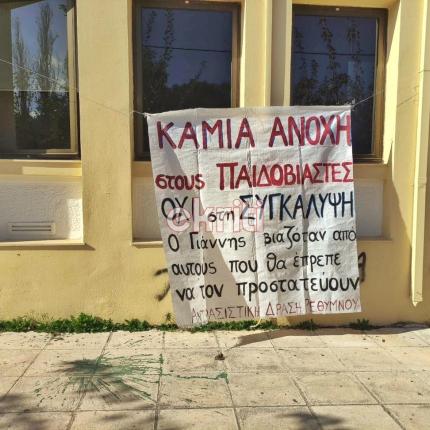 ΚΑΜΙΑ ΑΝΟΧΗ
στους ΠΑΙΔΟΒΙΑΣΤΕΣ
ΟΧΙ στη ΣΥΓΚΑΛΥΨΗ
Ο Γιάννης βιαζόταν από
αυτους που θα έπρεπε
να τον προστατεύουν
ΑΝΤΙΦΑΣΙΣΤΙΚΗ ΔΡΑΣΗ ΡΕΘΥΜΝΟΥ